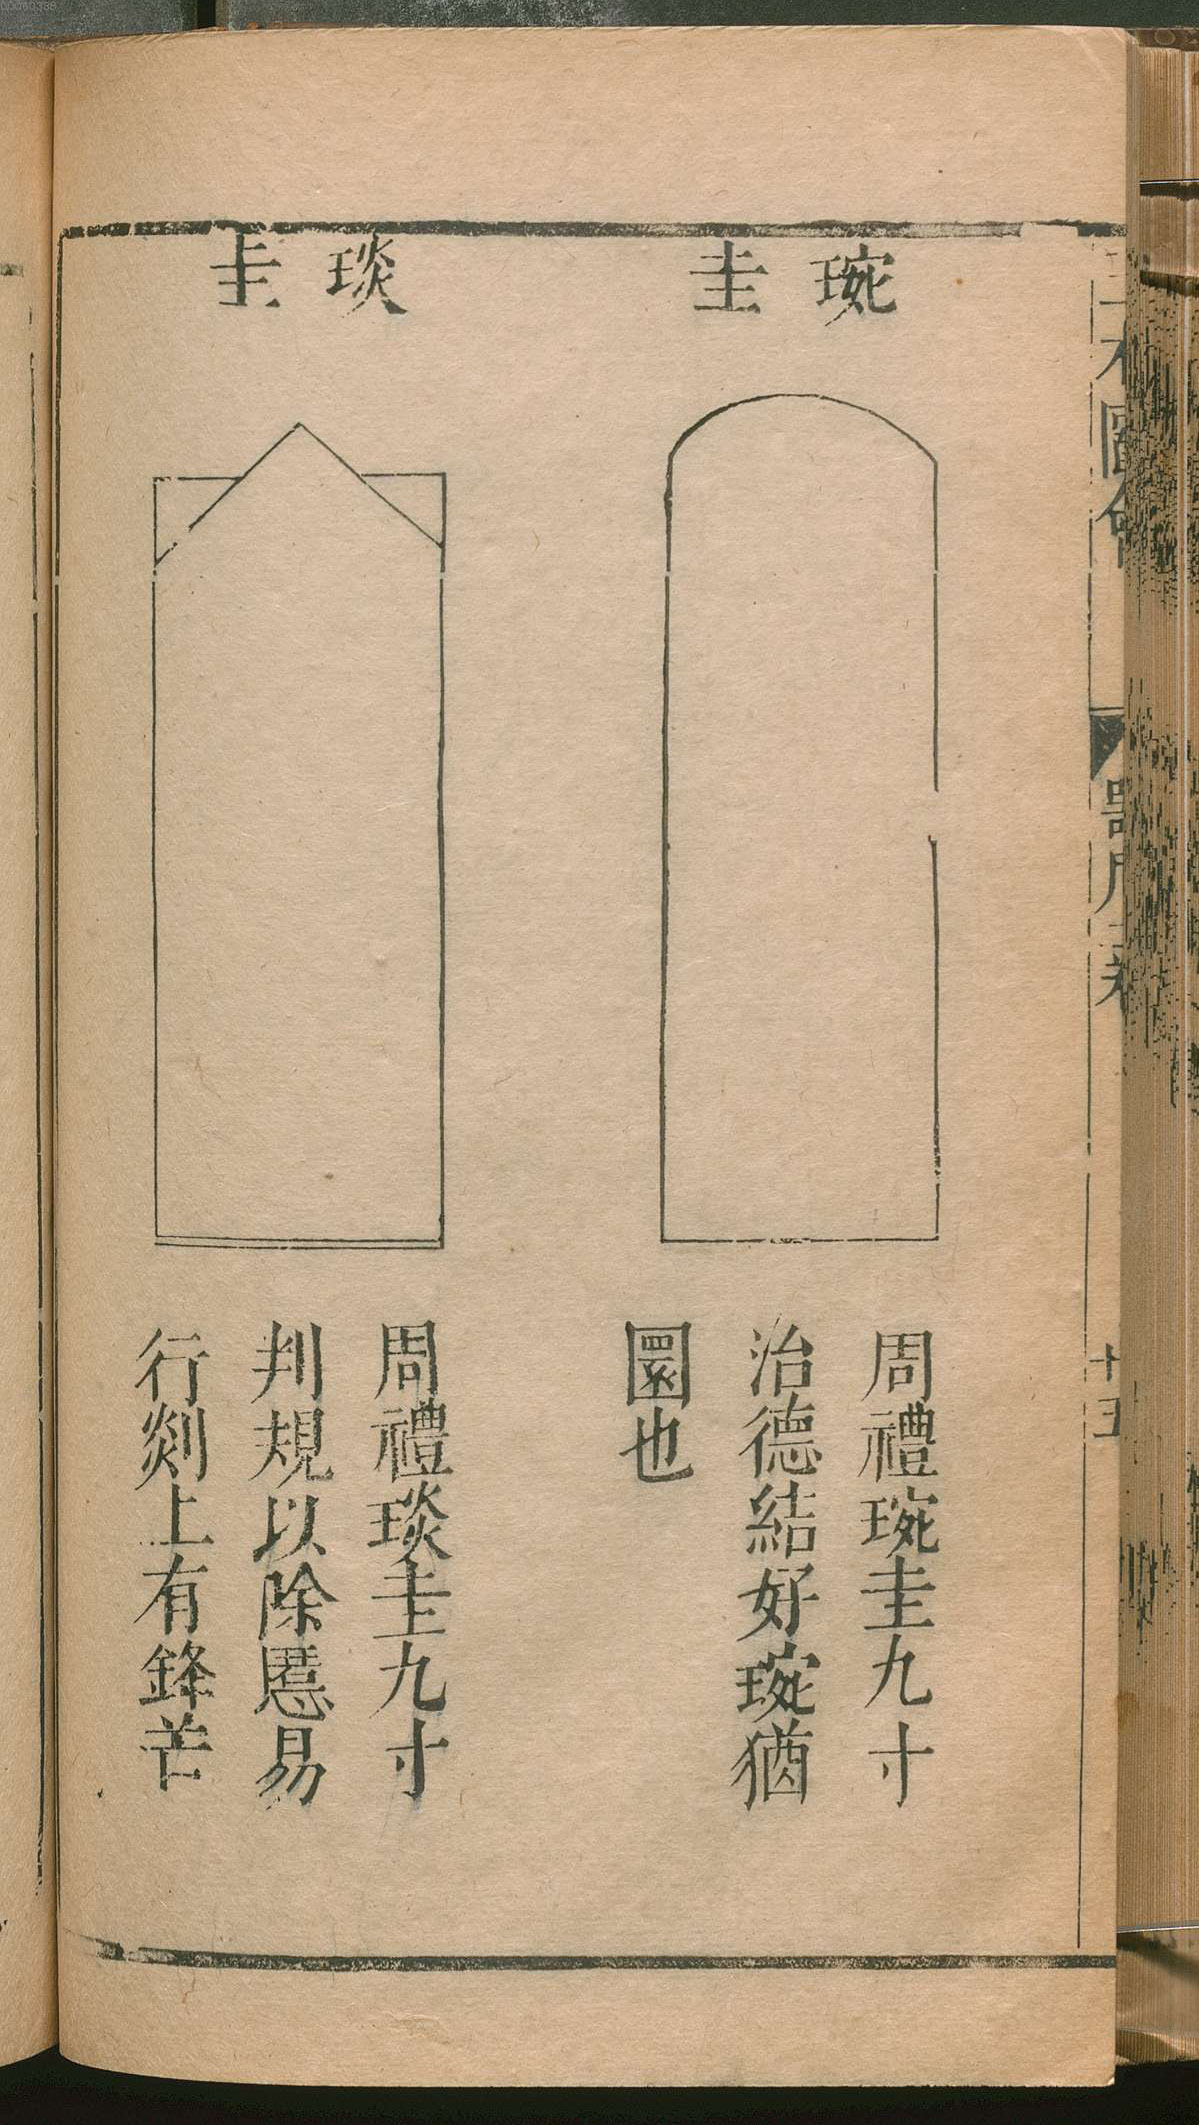 琬圭
周禮琬圭九寸
治德結好琬猶
圜也
琰圭
周禮琰圭九寸
判規以除慝易
行剡上有鋒芒
十五
00060338